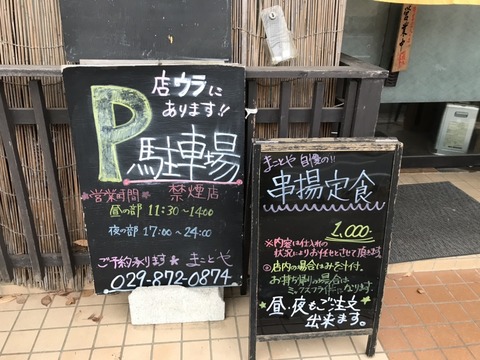 店ウラに
あります!!
P
駐車場
営業時間 禁煙店
昼の部 11:30~14:00
夜の部 17:00~24:00
ご予約承ります まことや
029-872-0874
まことや 自慢の!!
串揚定食
1,000-
※内容は仕入れの
状況によりお任せとさせて頂きます
店内の場合はみそ汁付。
お持ち帰りの場合は
ミックスフライ丼になります。
昼・夜もご注文
出来ます。
営業中